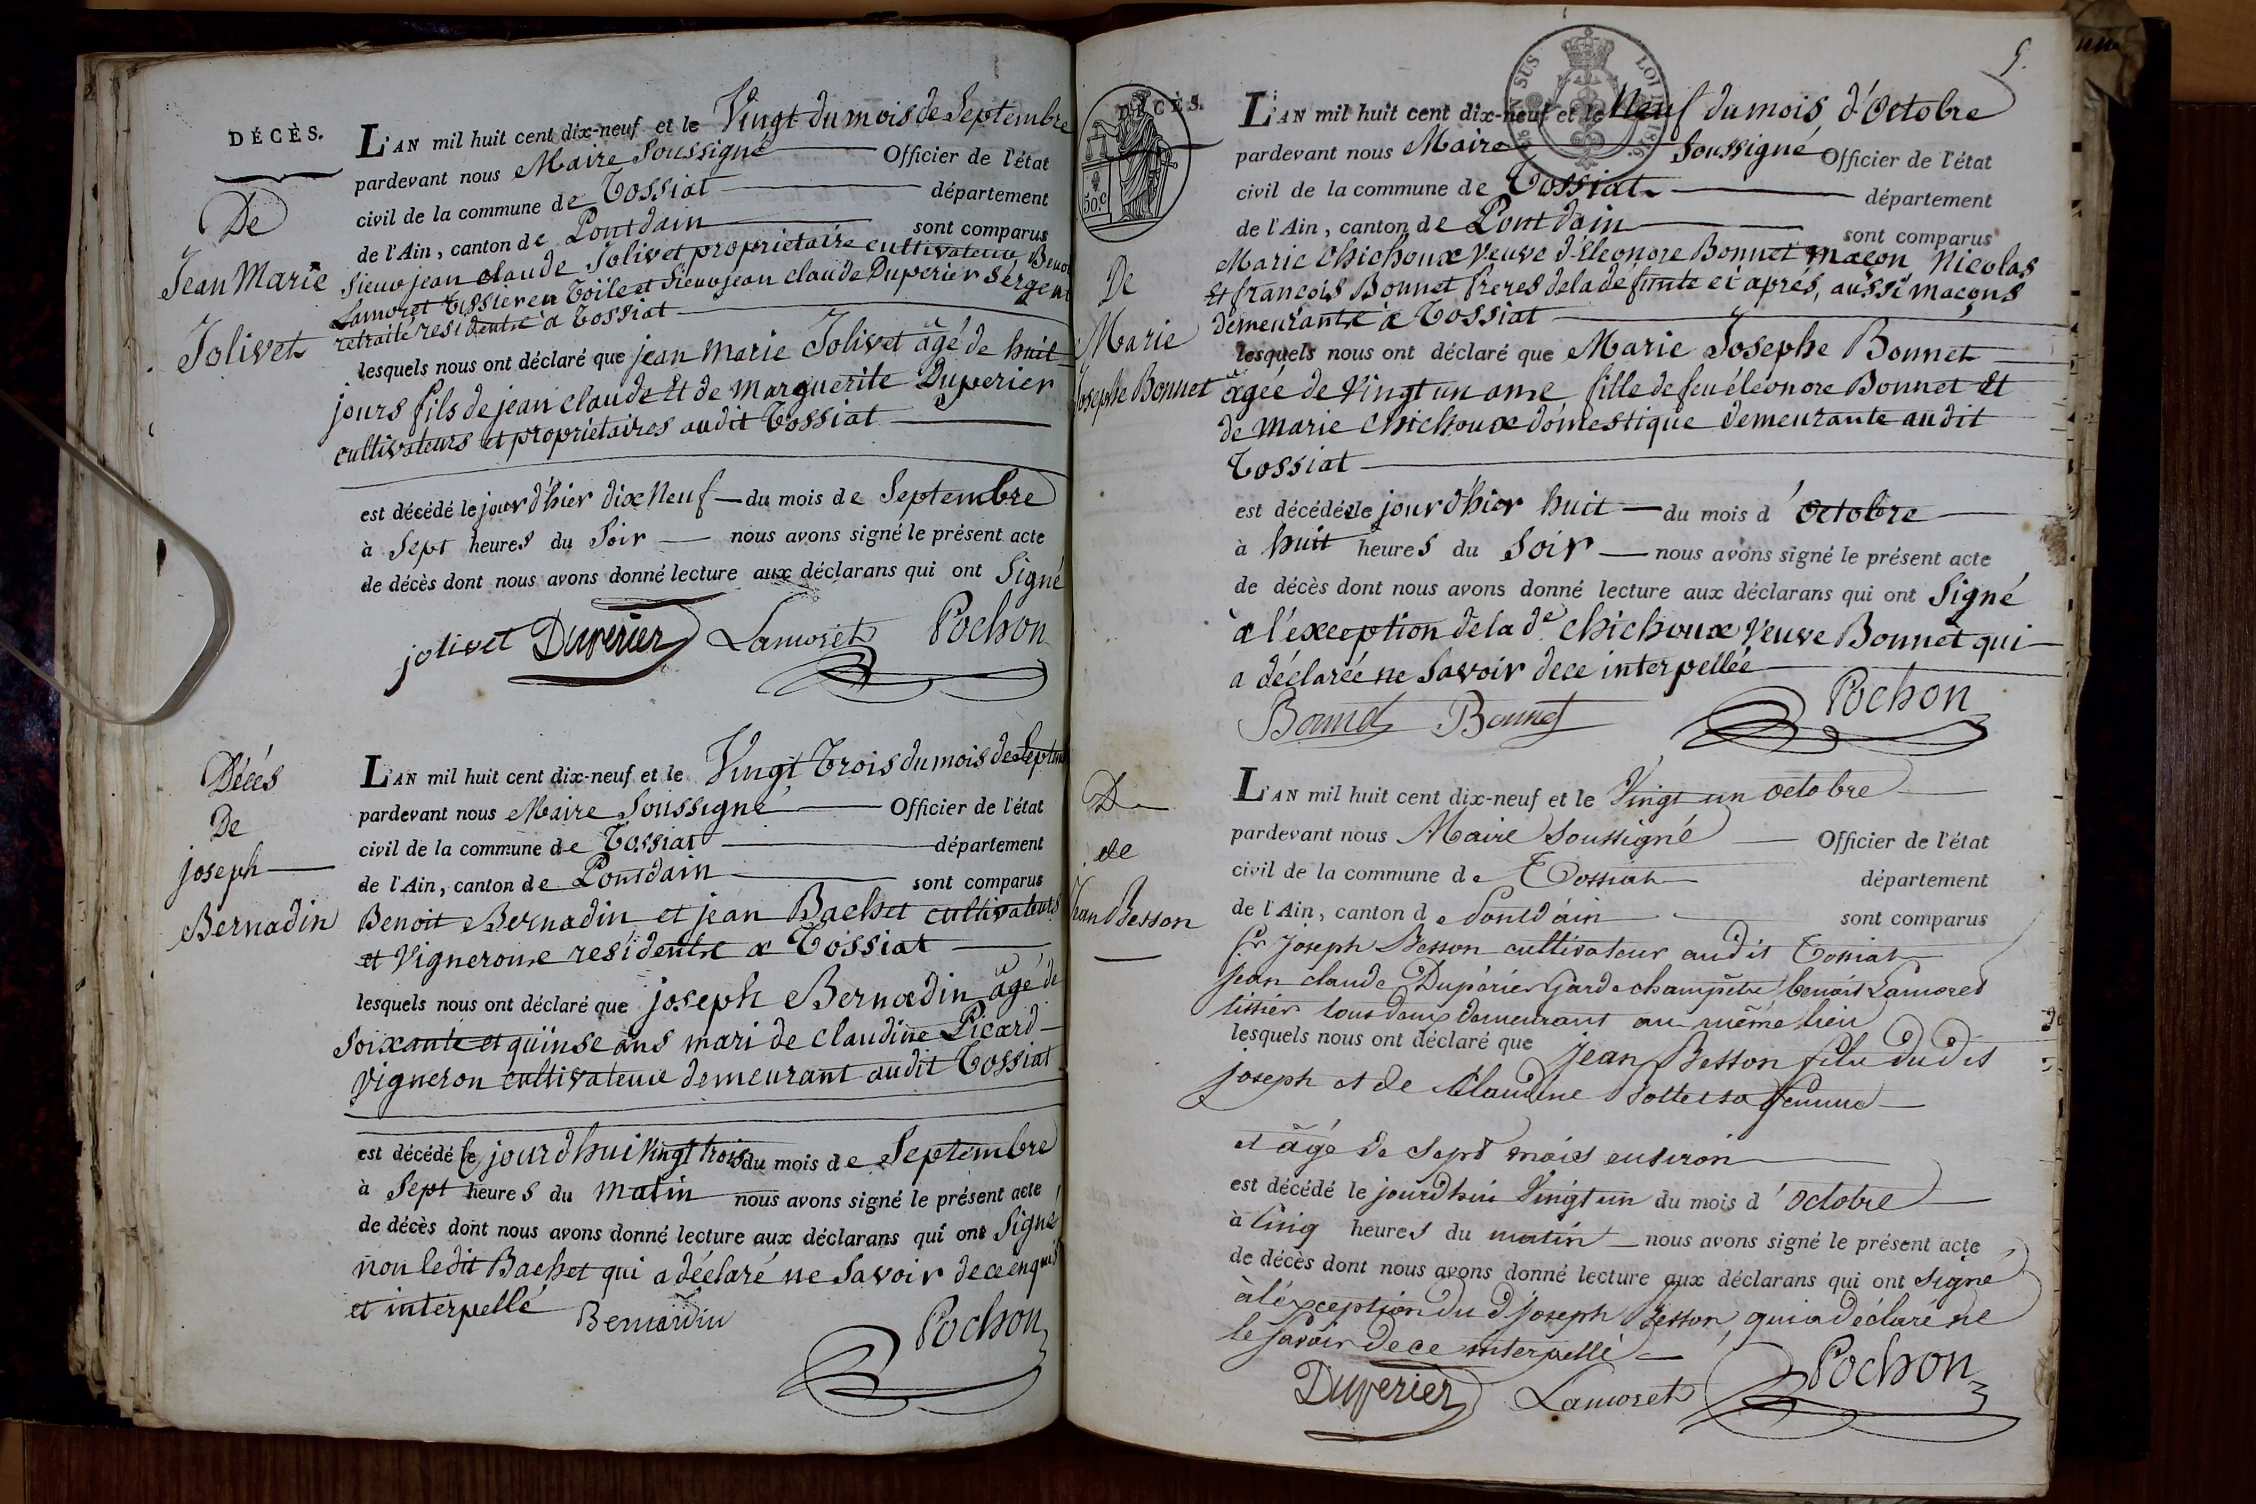 DÉCÈS.
De
Jean Marie
Jolivet
L'AN mil huit cent dix-neuf et le Vingt du mois de Septembre
pardevant nous Maire Soussigné Officier de l'état
civil de la commune de Tossiat département
de l'Ain, canton de Pontdain sont comparus
Sieur jean claude Jolivet proprietaire cultivateur Benoit
Lamoret Tissier en Toile et Sieur jean claude Duperier Sergent
retraité residents a Tossiat
lesquels nous ont déclaré que jean marie Jolivet âgé de huit
jours fils de jean claude Et de Marguerite Duperier
cultivateurs et propriétaires audit Tossiat
est décédé le jour d'hier dix Neuf du mois de Septembre
à Sept heures du Soir nous avons signé le présent acte
de décès dont nous avons donné lecture aux déclarans qui ont Signé
jolivet Duperier Lamoret Pochon
Décés
De
joseph
Bernadin
L'AN mil huit cent dix-neuf et le Vingt Trois du mois de Septembre
pardevant nous Maire Soussigné Officier de l'état
civil de la commune de Tossiat département
de l'Ain, canton de Pontdain sont comparus
Benoit Bernadin et jean Bachet cultivateurs
et Vignerons residents a Tossiat
lesquels nous ont déclaré que joseph Bernadin âgé de
Soixante et quinse ans mari de claudine Picard
Vigneron cultivateur demeurant audit Tossiat
est décédé le jourdhui Vingt trois du mois de Septembre
à Sept heures du Matin nous avons signé le présent acte
de décès dont nous avons donné lecture aux déclarans qui ont Signé
non ledit Bachet qui a déclaré ne Savoir de ce enquis
et interpellé
Bernardin Pochon
5.
DÉCÈS.
50.c
De
Marie
Josephe Bonnet
L'AN mil huit cent dix-neuf et le Neuf du mois d'Octobre
pardevant nous Maire Soussigné Officier de l'état
civil de la commune de Tossiat département
de l'Ain, canton de Pont dain sont comparus
Marie Chichoux Veuve d'Eleonore Bonnet maçon Nicolas
Et françois Bonnet freres de la défunte ci aprés, aussi maçons
demeurants à Tossiat
lesquels nous ont déclaré que Marie Josephe Bonnet
âgée de Vingt un ans fille de feu éléonore Bonnet Et
de Marie Chichoux domestique demeurante audit
Tossiat
est décédée le jour d'hier huit du mois d'Octobre
à huit heures du Soir nous avons signé le présent acte
de décès dont nous avons donné lecture aux déclarans qui ont Signé
à l'exception de la de Chichoux Veuve Bonnet qui
a déclarée ne Savoir de ce interpellée
Bonnet Bonnet Pochon
D
de
Jean Besson
L'AN mil huit cent dix-neuf et le Vingt un octobre
pardevant nous Maire Soussigné Officier de l'état
civil de la commune de Tossiat département
de l'Ain, canton de Pontdain sont comparus
Sr joseph Besson cultivateur audit Tossiat
jean claude Dupérier Garde champêtre benoit Lamoret
tissier tous deux demeurant au même lieu
lesquels nous ont déclaré que jean Besson fils dudit
joseph et de Claudine sa femme
et âgé de Sept mois environ
est décédé le jourdhui Vingt un du mois d'octobre
à Cinq heures du matin nous avons signé le présent acte
de décès dont nous avons donné lecture aux déclarans qui ont signé
à l'éxception du d joseph Besson, qui a déclaré ne
le Savoir de ce interpellé
Duperier Lamoret Pochon